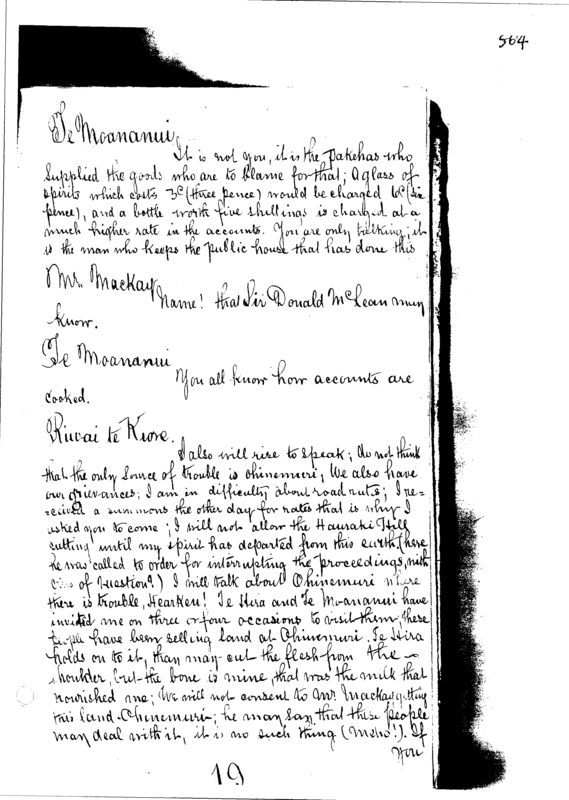 564
Te Moananui
It is not you, it is the Pakehas who
supplied the goods who are to blame for that; a glass of
spirits which costs 3d (three pence) would be charged 6d (six
pence), and a bottle worth five shillings is charged at a
much higher rate in the accounts. You are only talking; it
is the man who keeps the public house that has done this
Mr. Mackay
Name! that Sir Donald McLean may
know.
Te Moananui
You all know how accounts are
cooked.
Riwai te Kiore.
I also will rise to speak; do not think
that the only source of trouble is Ohinemuri; We also have
our grievances; I am in difficulty about road rates; I re=
=ceived a summons the other day for rates that is why I
asked you to come; I will not allow the Hauraki Hill
cutting until my spirit has departed from this earth. (here
he was called to order for interrupting the proceedings, with
of Question?) I will talk about Ohinemuri where
there is trouble, Hearken! Te Hira and Te Moananui have
invited me on three or four occasions to visit them, these
people have been selling land at Ohinemuri. Te Hira
holds on to it, they may cut the flesh from the
shoulder, but the bone is mine, that was the milk that
nourished me; We will not consent to Mr Mackay getting
this land Ohinemuri; he may say that these people
may deal with it, it is no such thing ( ). If
you
19